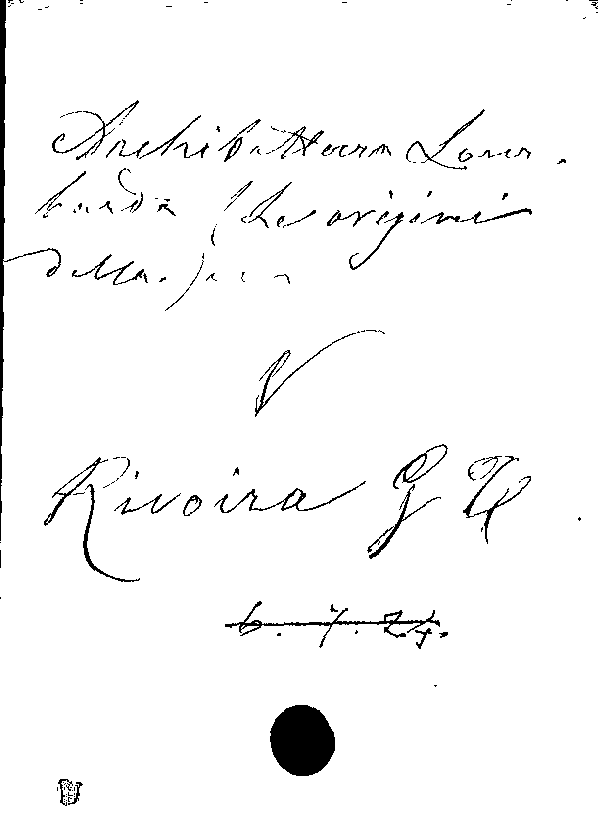 Architettura Lom-
barda (Le origini
della.) . . .
V
Rivoira G T
6. 7. 24.